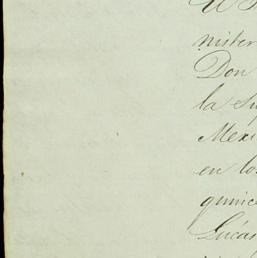 nister
Don
la Su
Mexi
en lo
quinc
Lucas